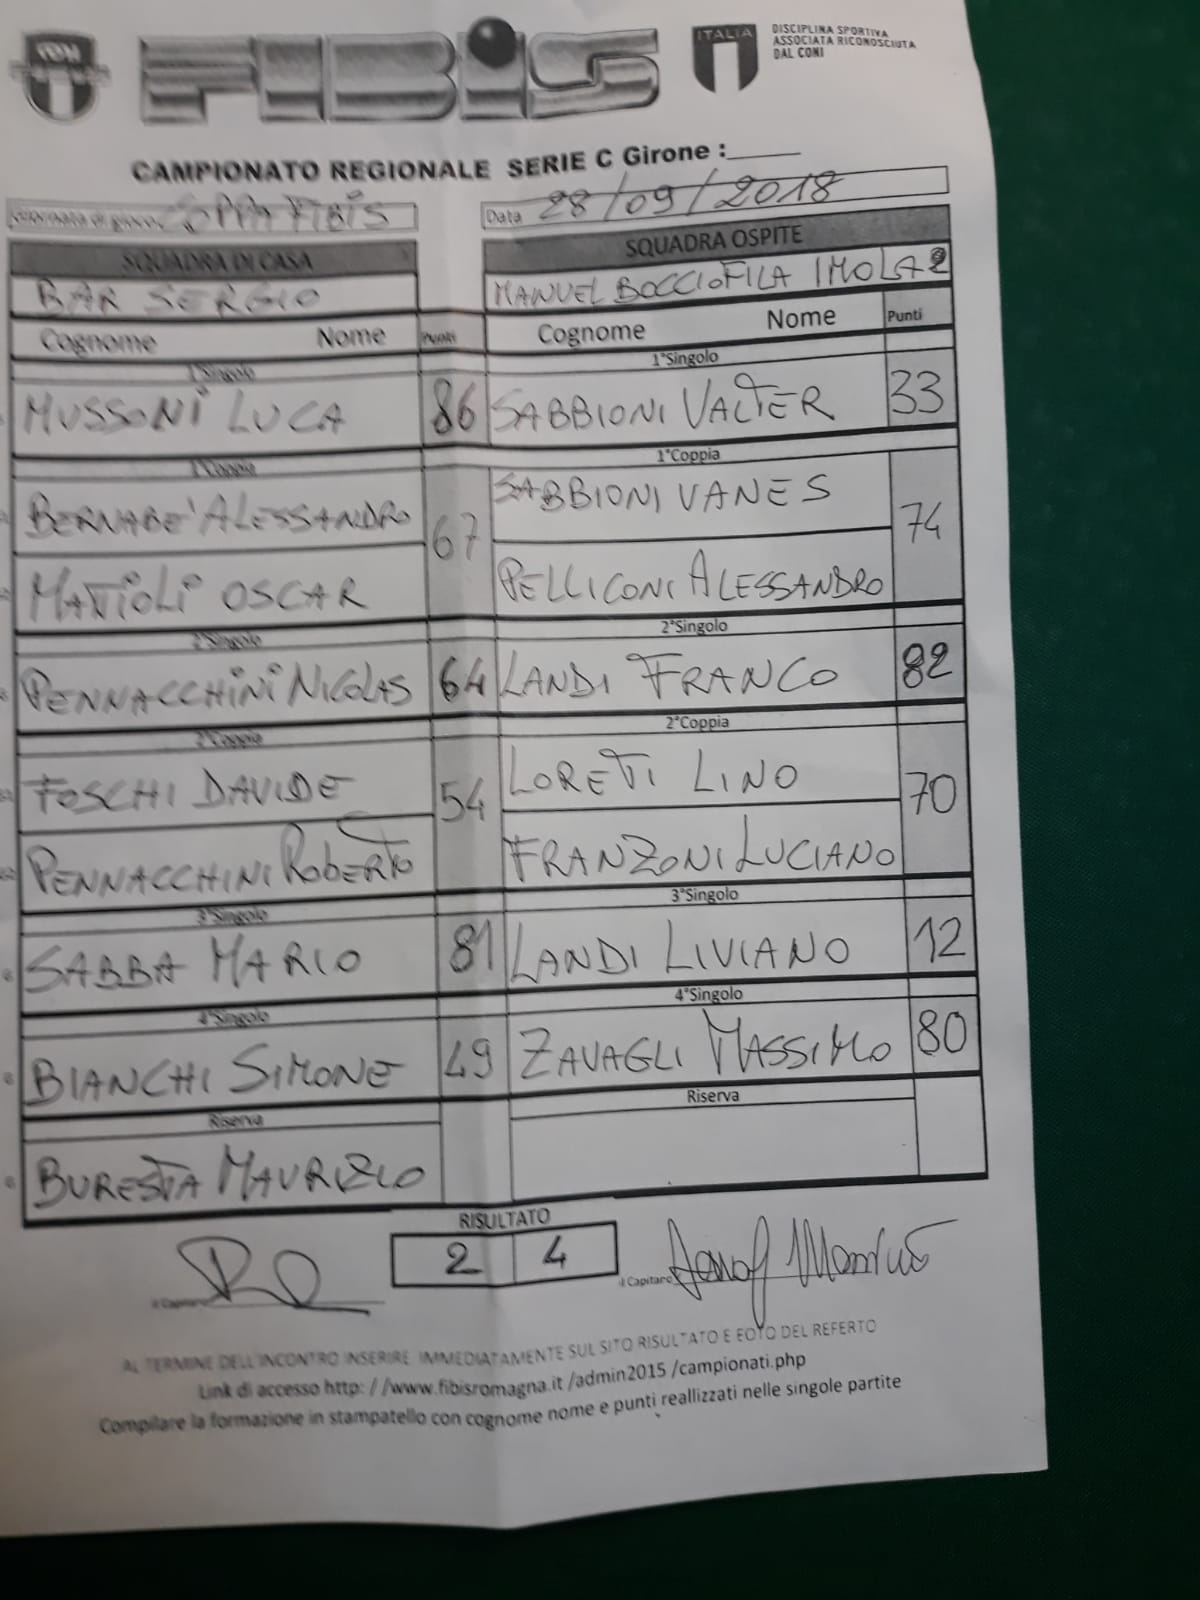 FIBiS
ITALIA
DISCIPLINA SPORTIVA
ASSOCIATA RICONOSCIUTA
DAL CONI
CAMPIONATO REGIONALE SERIE C Girone :
Giornata di gioco COPPA FIBIS
Data 28/09/2018
SQUADRA DI CASA
SQUADRA OSPITE
BAR SERGIO
MANUEL BOCCIOFILA IMOLA 2
Cognome Nome Punti Cognome Nome Punti
1°Singolo 1°Singolo
MUSSONI LUCA 86 SABBIONI VALTER 33
1°Coppia 1°Coppia
BERNABE' ALESSANDRO 67 SABBIONI VANES 74
MATTIOLI OSCAR PELLICONI ALESSANDRO
2°Singolo 2°Singolo
PENNACCHINI NICOLAS 64 LANDI FRANCO 82
2°Coppia 2°Coppia
FOSCHI DAVIDE 54 LORETI LINO 70
PENNACCHINI ROBERTO FRANZONI LUCIANO
3°Singolo 3°Singolo
SABBA MARIO 81 LANDI LIVIANO 12
4°Singolo 4°Singolo
BIANCHI SIMONE 49 ZAVAGLI MASSIMO 80
Riserva Riserva
BURESTA MAURIZIO
RISULTATO
2 4
il Capitano il Capitano
AL TERMINE DELL'INCONTRO INSERIRE IMMEDIATAMENTE SUL SITO RISULTATO E FOTO DEL REFERTO
Link di accesso http: / /www.fibisromagna.it /admin2015 /campionati.php
Compilare la formazione in stampatello con cognome nome e punti reallizzati nelle singole partite